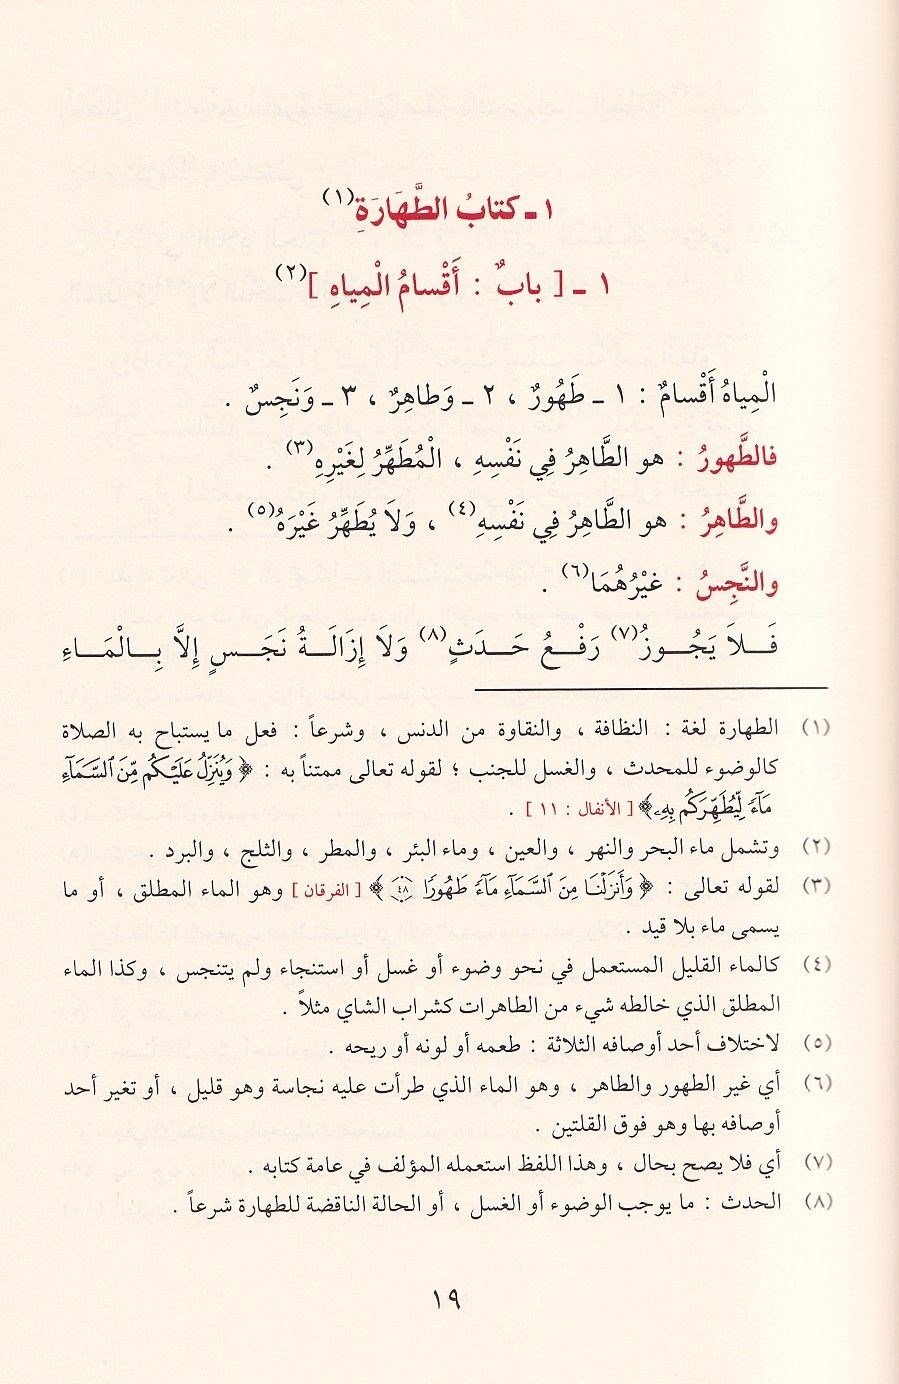 ١ ـ كتابُ الطَّهَارَةِ(١)
١ ـ [ بابٌ : أَقْسامُ الْمِياهِ ](٢)
الْمِياهُ أَقْسامٌ : ١ ـ طَهُورٌ ، ٢ ـ وَطاهِرٌ ، ٣ ـ وَنَجِسٌ .
فالطَّهورُ : هو الطَّاهِرُ فِي نَفْسِهِ ، الْمُطَهِّرُ لِغَيْرِهِ(٣) .
والطَّاهِرُ : هو الطَّاهِرُ فِي نَفْسِهِ(٤) ، وَلَا يُطَهِّرُ غَيْرَهُ(٥) .
والنَّجِسُ : غَيْرُهُمَا(٦) .
فَلَا يَجُوزُ(٧) رَفْعُ حَدَثٍ(٨) وَلَا إِزَالَةُ نَجَسٍ إِلَّا بِالْمَاءِ
(١) الطهارة لغة : النظافة ، والنقاوة من الدنس ، وشرعاً : فعل ما يستباح به الصلاة
كالوضوء للمحدث ، والغسل للجنب ؛ لقوله تعالى ممتناً به : ﴿ وَيُنَزِّلُ عَلَيْكُم مِّنَ ٱلسَّمَآءِ
مَآءً لِّيُطَهِّرَكُم بِهِۦ﴾ [ الأنفال : ١١ ] .
(٢) وتشمل ماء البحر والنهر ، والعين ، وماء البئر ، والمطر ، والثلج ، والبرد .
(٣) لقوله تعالى : ﴿ وَأَنزَلْنَا مِنَ ٱلسَّمَآءِ مَآءً طَهُورًا ﴿٤٨﴾ ﴾ [ الفرقان ] وهو الماء المطلق ، أو ما
يسمى ماء بلا قيد .
(٤) كالماء القليل المستعمل في نحو وضوء أو غسل أو استنجاء ولم يتنجس ، وكذا الماء
المطلق الذي خالطه شيء من الطاهرات كشراب الشاي مثلاً .
(٥) لاختلاف أحد أوصافه الثلاثة : طعمه أو لونه أو ريحه .
(٦) أي غير الطهور والطاهر ، وهو الماء الذي طرأت عليه نجاسة وهو قليل ، أو تغير أحد
أوصافه بها وهو فوق القلتين .
(٧) أي فلا يصح بحال ، وهذا اللفظ استعمله المؤلف في عامة كتابه .
(٨) الحدث : ما يوجب الوضوء أو الغسل ، أو الحالة الناقضة للطهارة شرعاً .
١٩